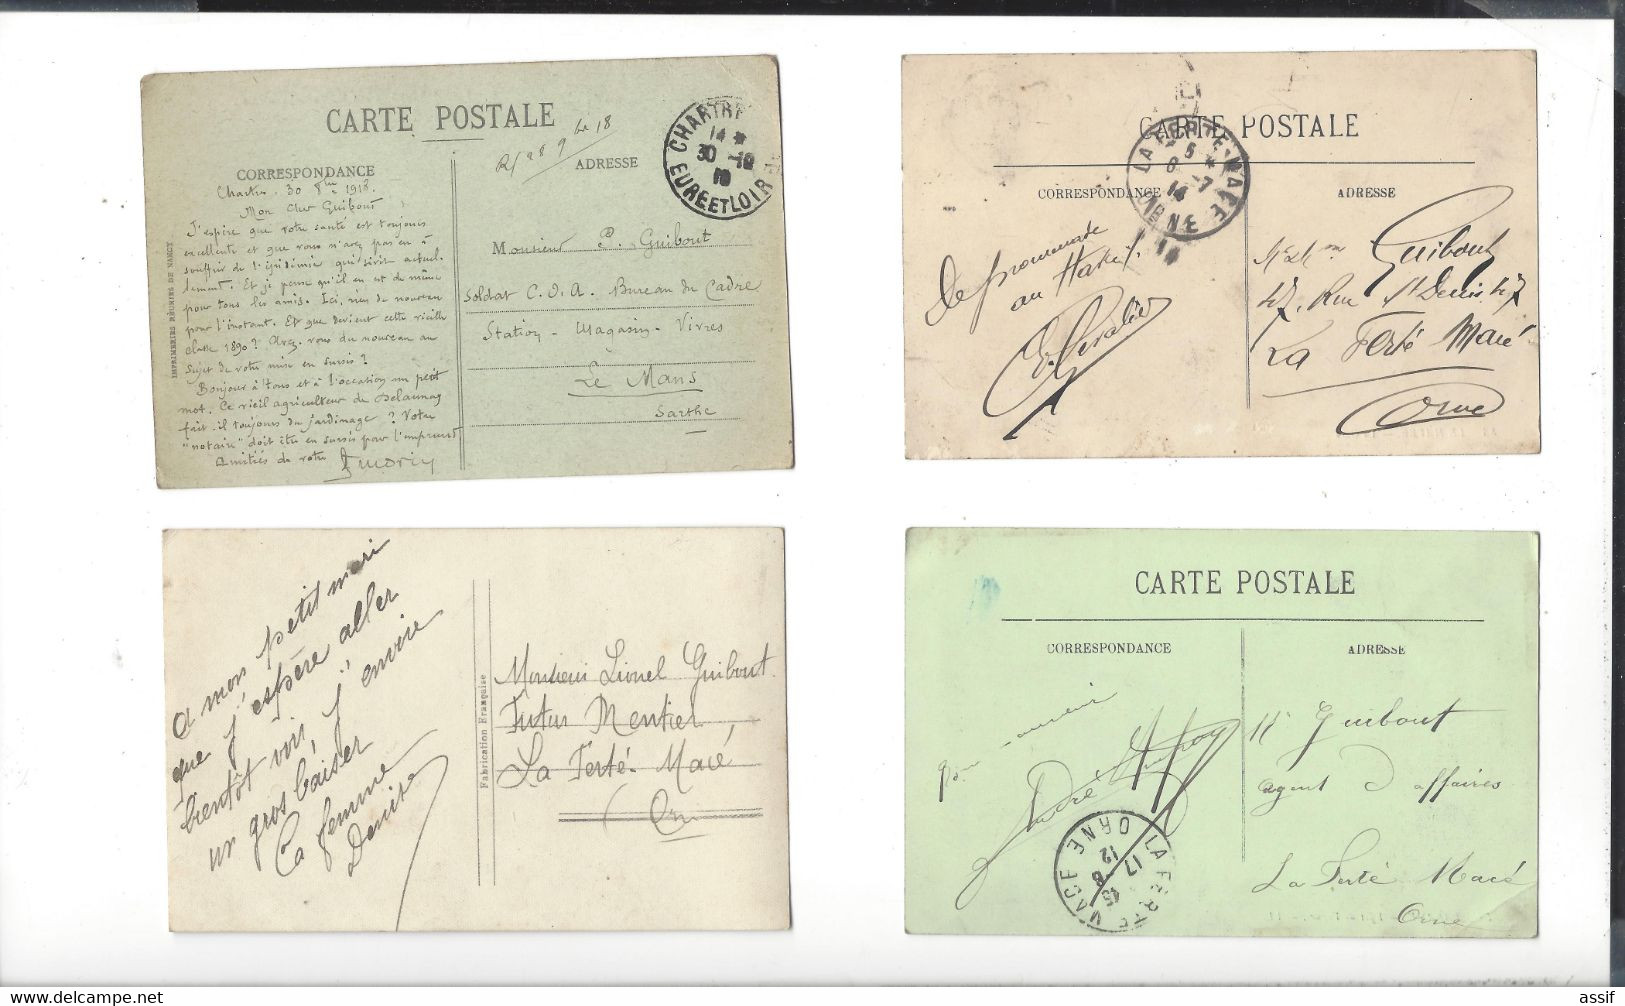 CARTE POSTALE
CORRESPONDANCE
ADRESSE
CHARTRE
14 *
30 -10
18
EURE ET LOIR
Chartres. 30 8bre 1918.
Mon cher Guibout
J'espère que votre santé est toujours
excellente et que vous n'avez pas eu à
souffrir de l'épidémie qui sévit actuel-
lement. Et je pense qu'il en est de même
pour tous les amis. Ici, rien de nouveau
pour l'instant. Et que devient cette vieille
classe 1890? Avez-vous du nouveau au
sujet de votre mise en sursis?
Bonjour à tous et à l'occasion un petit
mot. Ce vieil agriculteur de Delaunay
fait-il toujours du jardinage? Votre
"notaire" doit être en sursis pour l'emprunt
Amitiés de votre
Monsieur P. Guibout
Soldat C.O.A. Bureau du Cadre
Station-Magasin-Vivres
Le Mans
Sarthe
IMPRIMERIES RÉUNIES DE NANCY
CARTE POSTALE
CORRESPONDANCE
ADRESSE
LA FERTE-MACE
ORNE
6 -7
14
De promenade
au
Guibout
47, Rue St Denis, 47
La Ferté Macé
Orne
a mon petit mari
que j'espère aller
bientôt voir, j'envoie
un gros baiser
Ta femme
Denise
Fabrication Française
Monsieur Lionel Guibout
Futur Mentier
La Ferté-Macé
(Orne
CARTE POSTALE
CORRESPONDANCE
ADRESSE
André
LA FERTE MACE
ORNE
12
17 -8
15
Mr Guibout
agent d'affaires
La Ferté Macé
Orne
assif